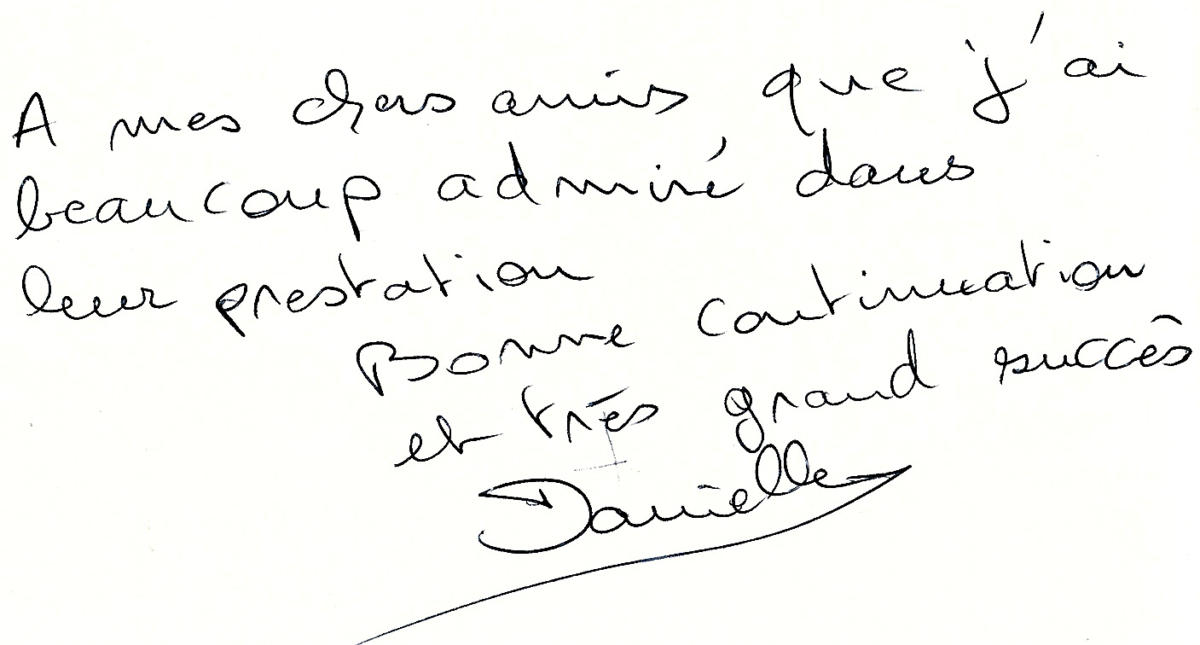 A mes chers amis que j'ai
beaucoup admiré dans
leur prestation
Bonne continuation
et très grand succès
Danielle